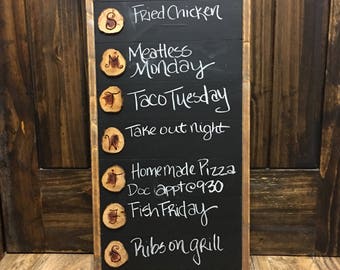 S Fried Chicken
M Meatless
Monday
T Taco Tuesday
W Take out night
T Homemade Pizza
Doc appt @ 930
F Fish Friday
S Ribs on grill